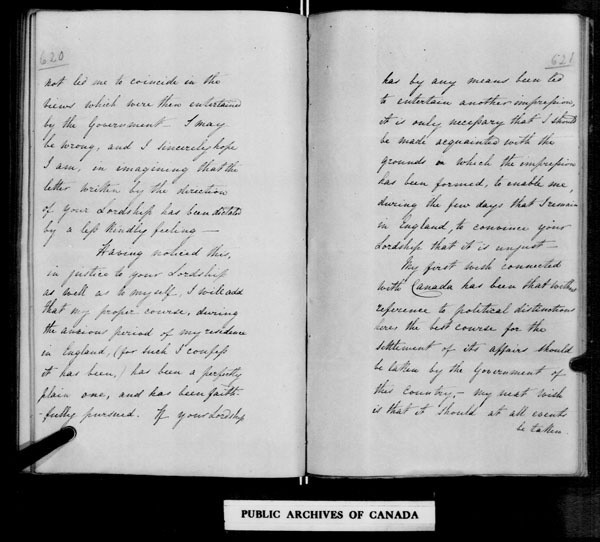 620
not led me to coincide in the
views which were then entertained
by the Government — I may
be wrong, and I sincerely hope
I am, in imagining that the
letter written by the direction
of your Lordship has been dictated
by a less kindly feeling —
Having noticed this,
in justice to your Lordship
as well as to myself, I will add
that my proper course, during
the anxious period of my residence
in England, (for such I confess
it has been,) has been a perfectly
plain one, and has been faith-
-fully pursued. If your Lordship
621
has by any means been led
to entertain another impression,
it is only necessary that I should
be made acquainted with the
grounds on which the impression
has been formed, to enable me,
during the few days that I remain
in England, to convince your
Lordship that it is unjust —
My first wish connected
with Canada has been that without
reference to political distinctions
here the best course for the
settlement of its affairs should
be taken by the Government of
this country, — my next wish
is that it should at all events
be taken.
PUBLIC ARCHIVES OF CANADA